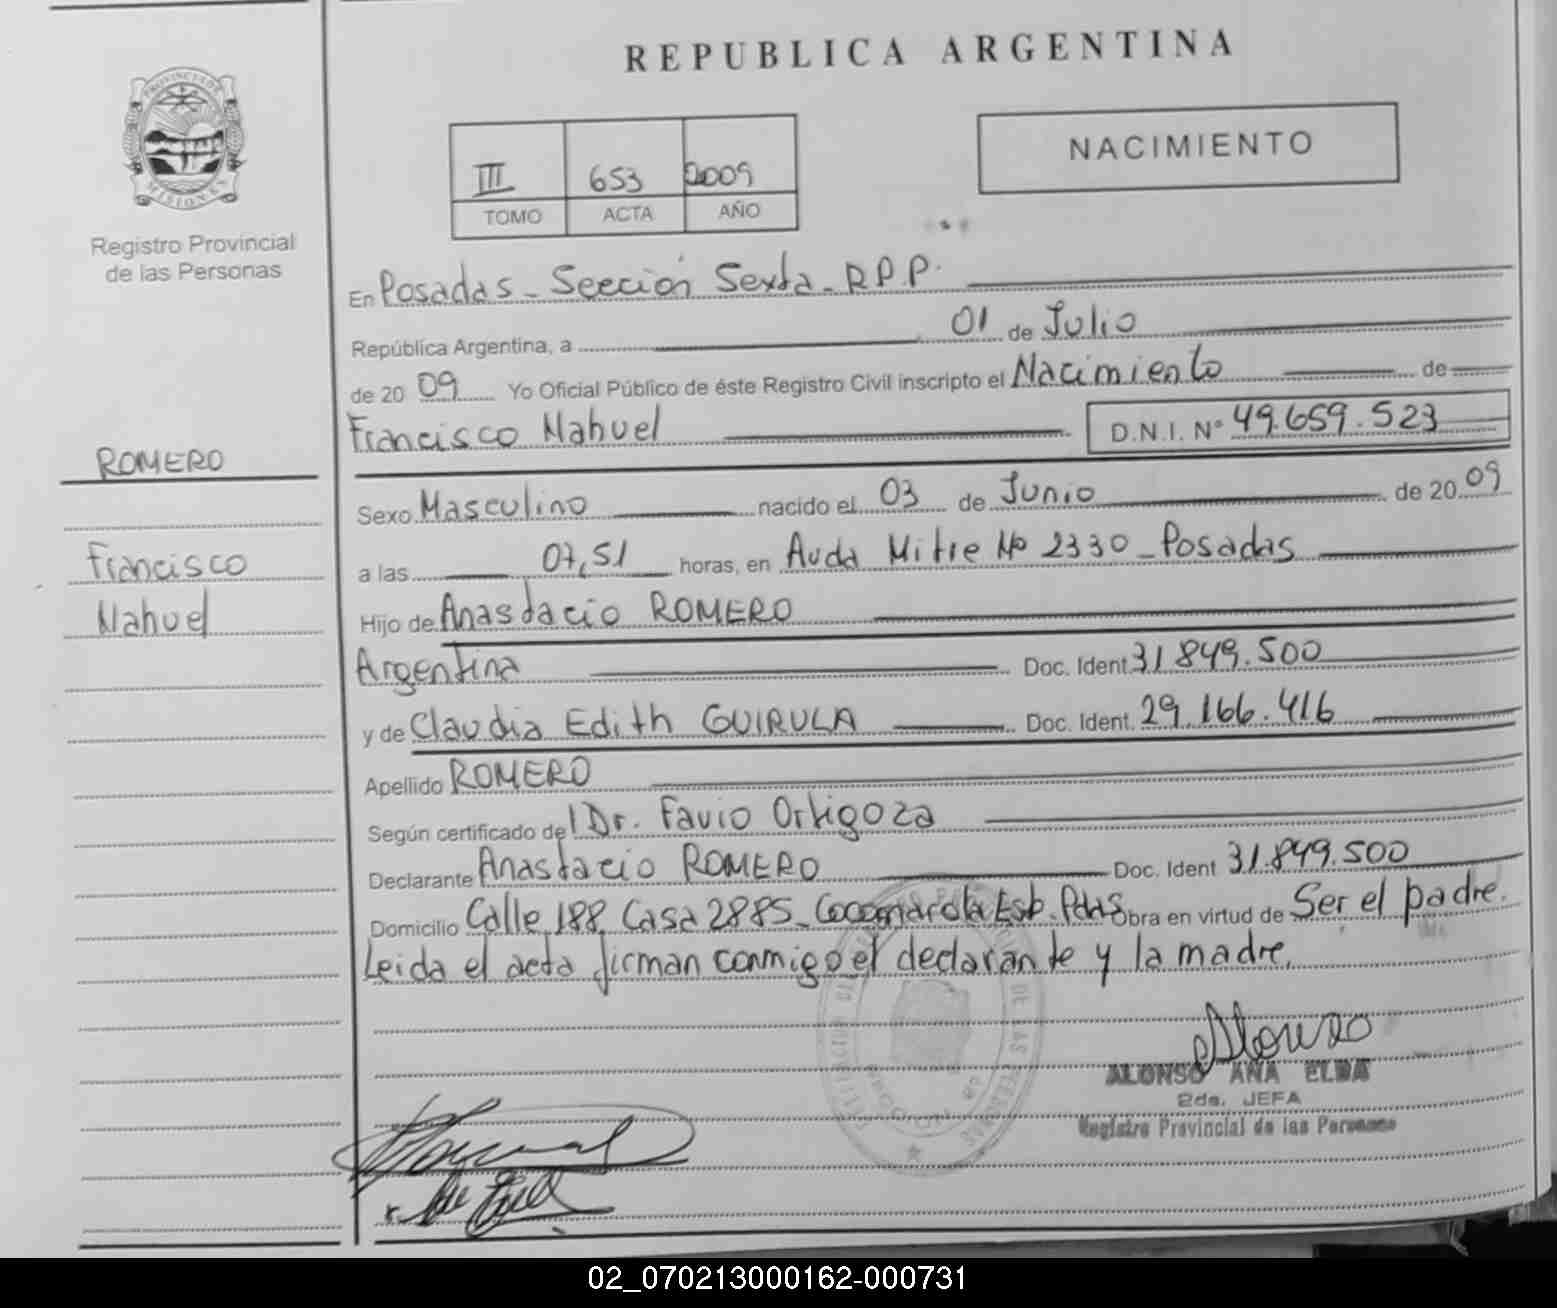 REPUBLICA ARGENTINA
PROVINCIA DE
MISIONES
Registro Provincial
de las Personas
III 653 2009
TOMO ACTA AÑO
NACIMIENTO
En Posadas - Sección Sexta - R.P.P.
República Argentina, a 01 de Julio
de 20 09 Yo Oficial Público de éste Registro Civil inscripto el Nacimiento de
Francisco Nahuel D.N.I. N° 49.659.523
ROMERO
Sexo Masculino nacido el 03 de Junio de 20 09
Francisco
a las 07,51 horas, en Avda Mitre Nº 2330 - Posadas
Nahuel
Hijo de Anastacio ROMERO
Argentina Doc. Ident 31.849.500
y de Claudia Edith GUIRULA Doc. Ident. 29.166.416
Apellido ROMERO
Según certificado del Dr. Favio Ortigoza
Declarante Anastacio ROMERO Doc. Ident 31.849.500
Domicilio Calle 188, Casa 2885 - Cocomarola Esb. Pdas Obra en virtud de Ser el padre.
Leida el acta firman conmigo el declarante y la madre.
DE LAS PERSONAS
Alonso
ALONSO ANA ELBA
2da. JEFA
Registro Provincial de las Personas
02_070213000162-000731